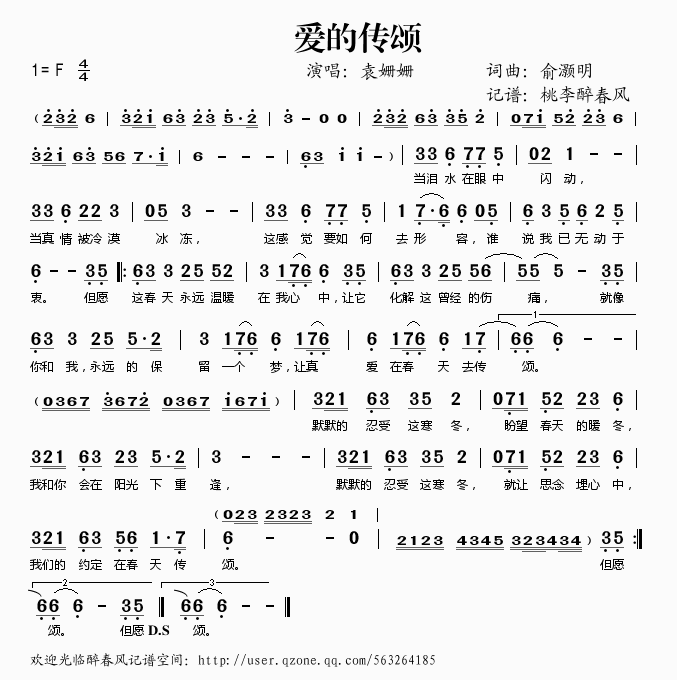 爱的传颂
1= F 4/4 演唱：袁姗姗 词曲：俞灏明
记谱：桃李醉春风
( 2 3 2 6 | 3 2 1 6 3 2 3 5 · 2 | 3 - 0 0 | 2 3 2 6 3 3 5 2 | 0 7 1 5 2 2 3 6
3 2 1 6 3 5 6 7 · 1 | 6 - - - | 6 3 1 1 - ) | 3 3 6 7 7 5 | 0 2 1 - - |
当泪 水 在眼 中 闪 动，
3 3 6 2 2 3 | 0 5 3 - - | 3 3 6 7 7 5 | 1 7 · 6 6 0 5 | 6 3 5 6 2 5
当真 情 被冷 漠 冰 冻， 这感 觉 要如 何 去 形 容，谁 说 我 已 无 动 于
6 - - 3 5 ‖: 6 3 3 2 5 5 2 | 3 1 7 6 6 3 5 | 6 3 3 2 5 5 6 | 5 5 5 - 3 5 |
衷。 但愿 这春 天 永远 温暖 在 我心 中，让它 化解 这 曾经 的伤 痛， 就像
6 3 3 2 5 5 · 2 | 3 1 7 6 6 3 5 | 6 1 7 6 6 1 7 | 1 6 6 6 - - |
你和 我，永远 的 保 留 一个 梦，让真 爱 在春 天 去传 颂。
( 0 3 6 7 3 6 7 2 0 3 6 7 1 6 7 1 ) | 3 2 1 6 3 3 5 2 | 0 7 1 5 2 2 3 6 |
默默的 忍受 这寒 冬， 盼望 春天 的暖 冬，
3 2 1 6 3 2 3 5 · 2 | 3 - - - | 3 2 1 6 3 3 5 2 | 0 7 1 5 2 2 3 6 |
我和你 会在 阳光 下 重 逢， 默默的 忍受 这寒 冬， 就让 思念 埋心 中，
( 0 2 3 2 3 2 3 2 1 |
3 2 1 6 3 5 6 1 · 7 | 6 - - 0 | 2 1 2 3 4 3 4 5 3 2 3 4 3 4 ) 3 5 :‖
我们的 约定 在春 天 传 颂。 但愿
2 3
6 6 6 - 3 5 ‖ 6 6 6 - - ‖
颂。 但愿 D.S 颂。
欢迎光临醉春风记谱空间：http://user.qzone.qq.com/563264185